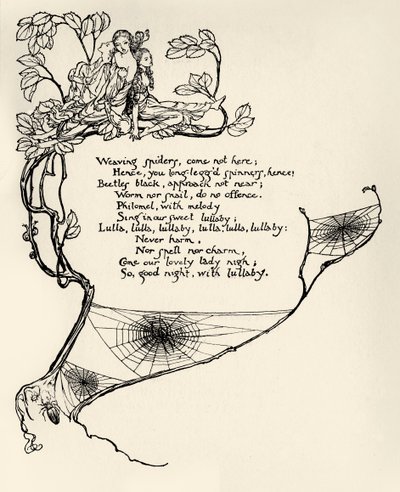 Weaving spiders, come not here;
Hence, you long-legg'd spinners, hence!
Beetles black, approach not near;
Worm nor snail, do no offence.
Philomel, with melody
Sing in our sweet lullaby;
Lulla, lulla, lullaby, lulla, lulla, lullaby:
Never harm,
Nor spell nor charm,
Come our lovely lady nigh;
So, good night, with lullaby.